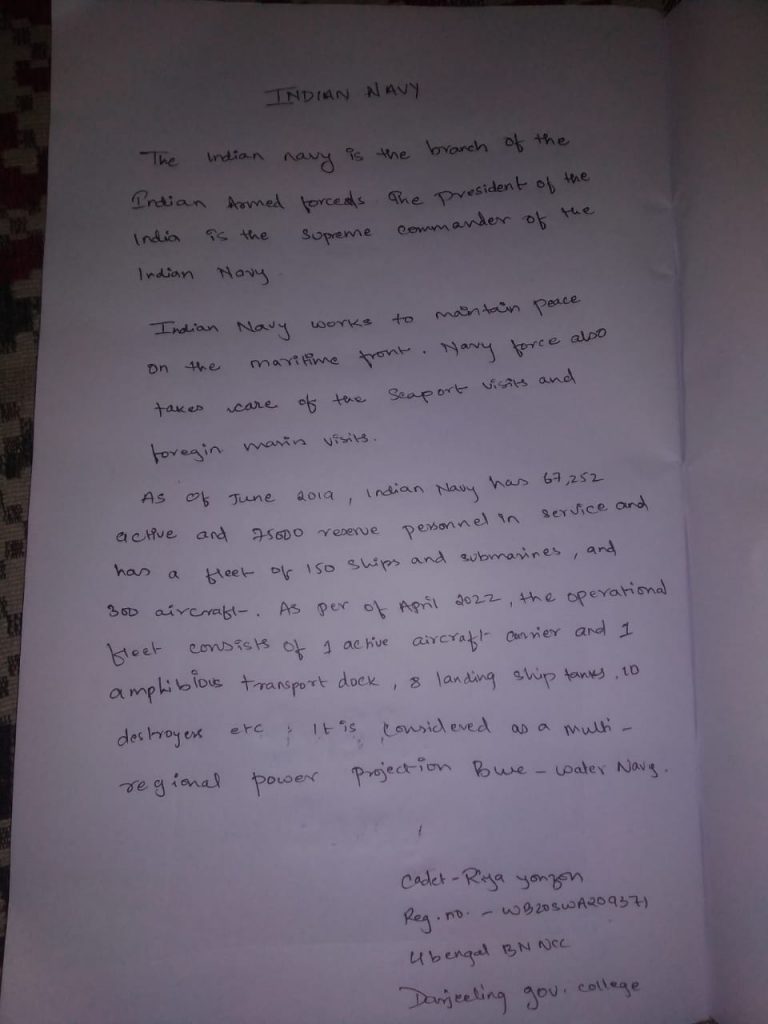 INDIAN NAVY
The Indian navy is the branch of the
Indian Armed forceds The president of the
India is the Supreme commander of the
Indian Navy
Indian Navy works to maintain peace
on the maritime front. Navy force also
takes care of the Seaport visits and
foregin marin visits.
As of June 2019, Indian Navy has 67,252
active and 75000 reserve personnel in service and
has a fleet of 150 ships and submarines, and
300 aircraft-. As per of April 2022, the operational
fleet consists of 1 active aircraft carrier and 1
amphibious transport dock, 8 landing ship tanks, 10
destroyers etc ; It is considered as a multi-
regional power projection Blue-water Navy.
Cadet - Riya yonzon
Reg. no. - WB20SWA209371
4 bengal BN NCC
Darjeeling gov. college